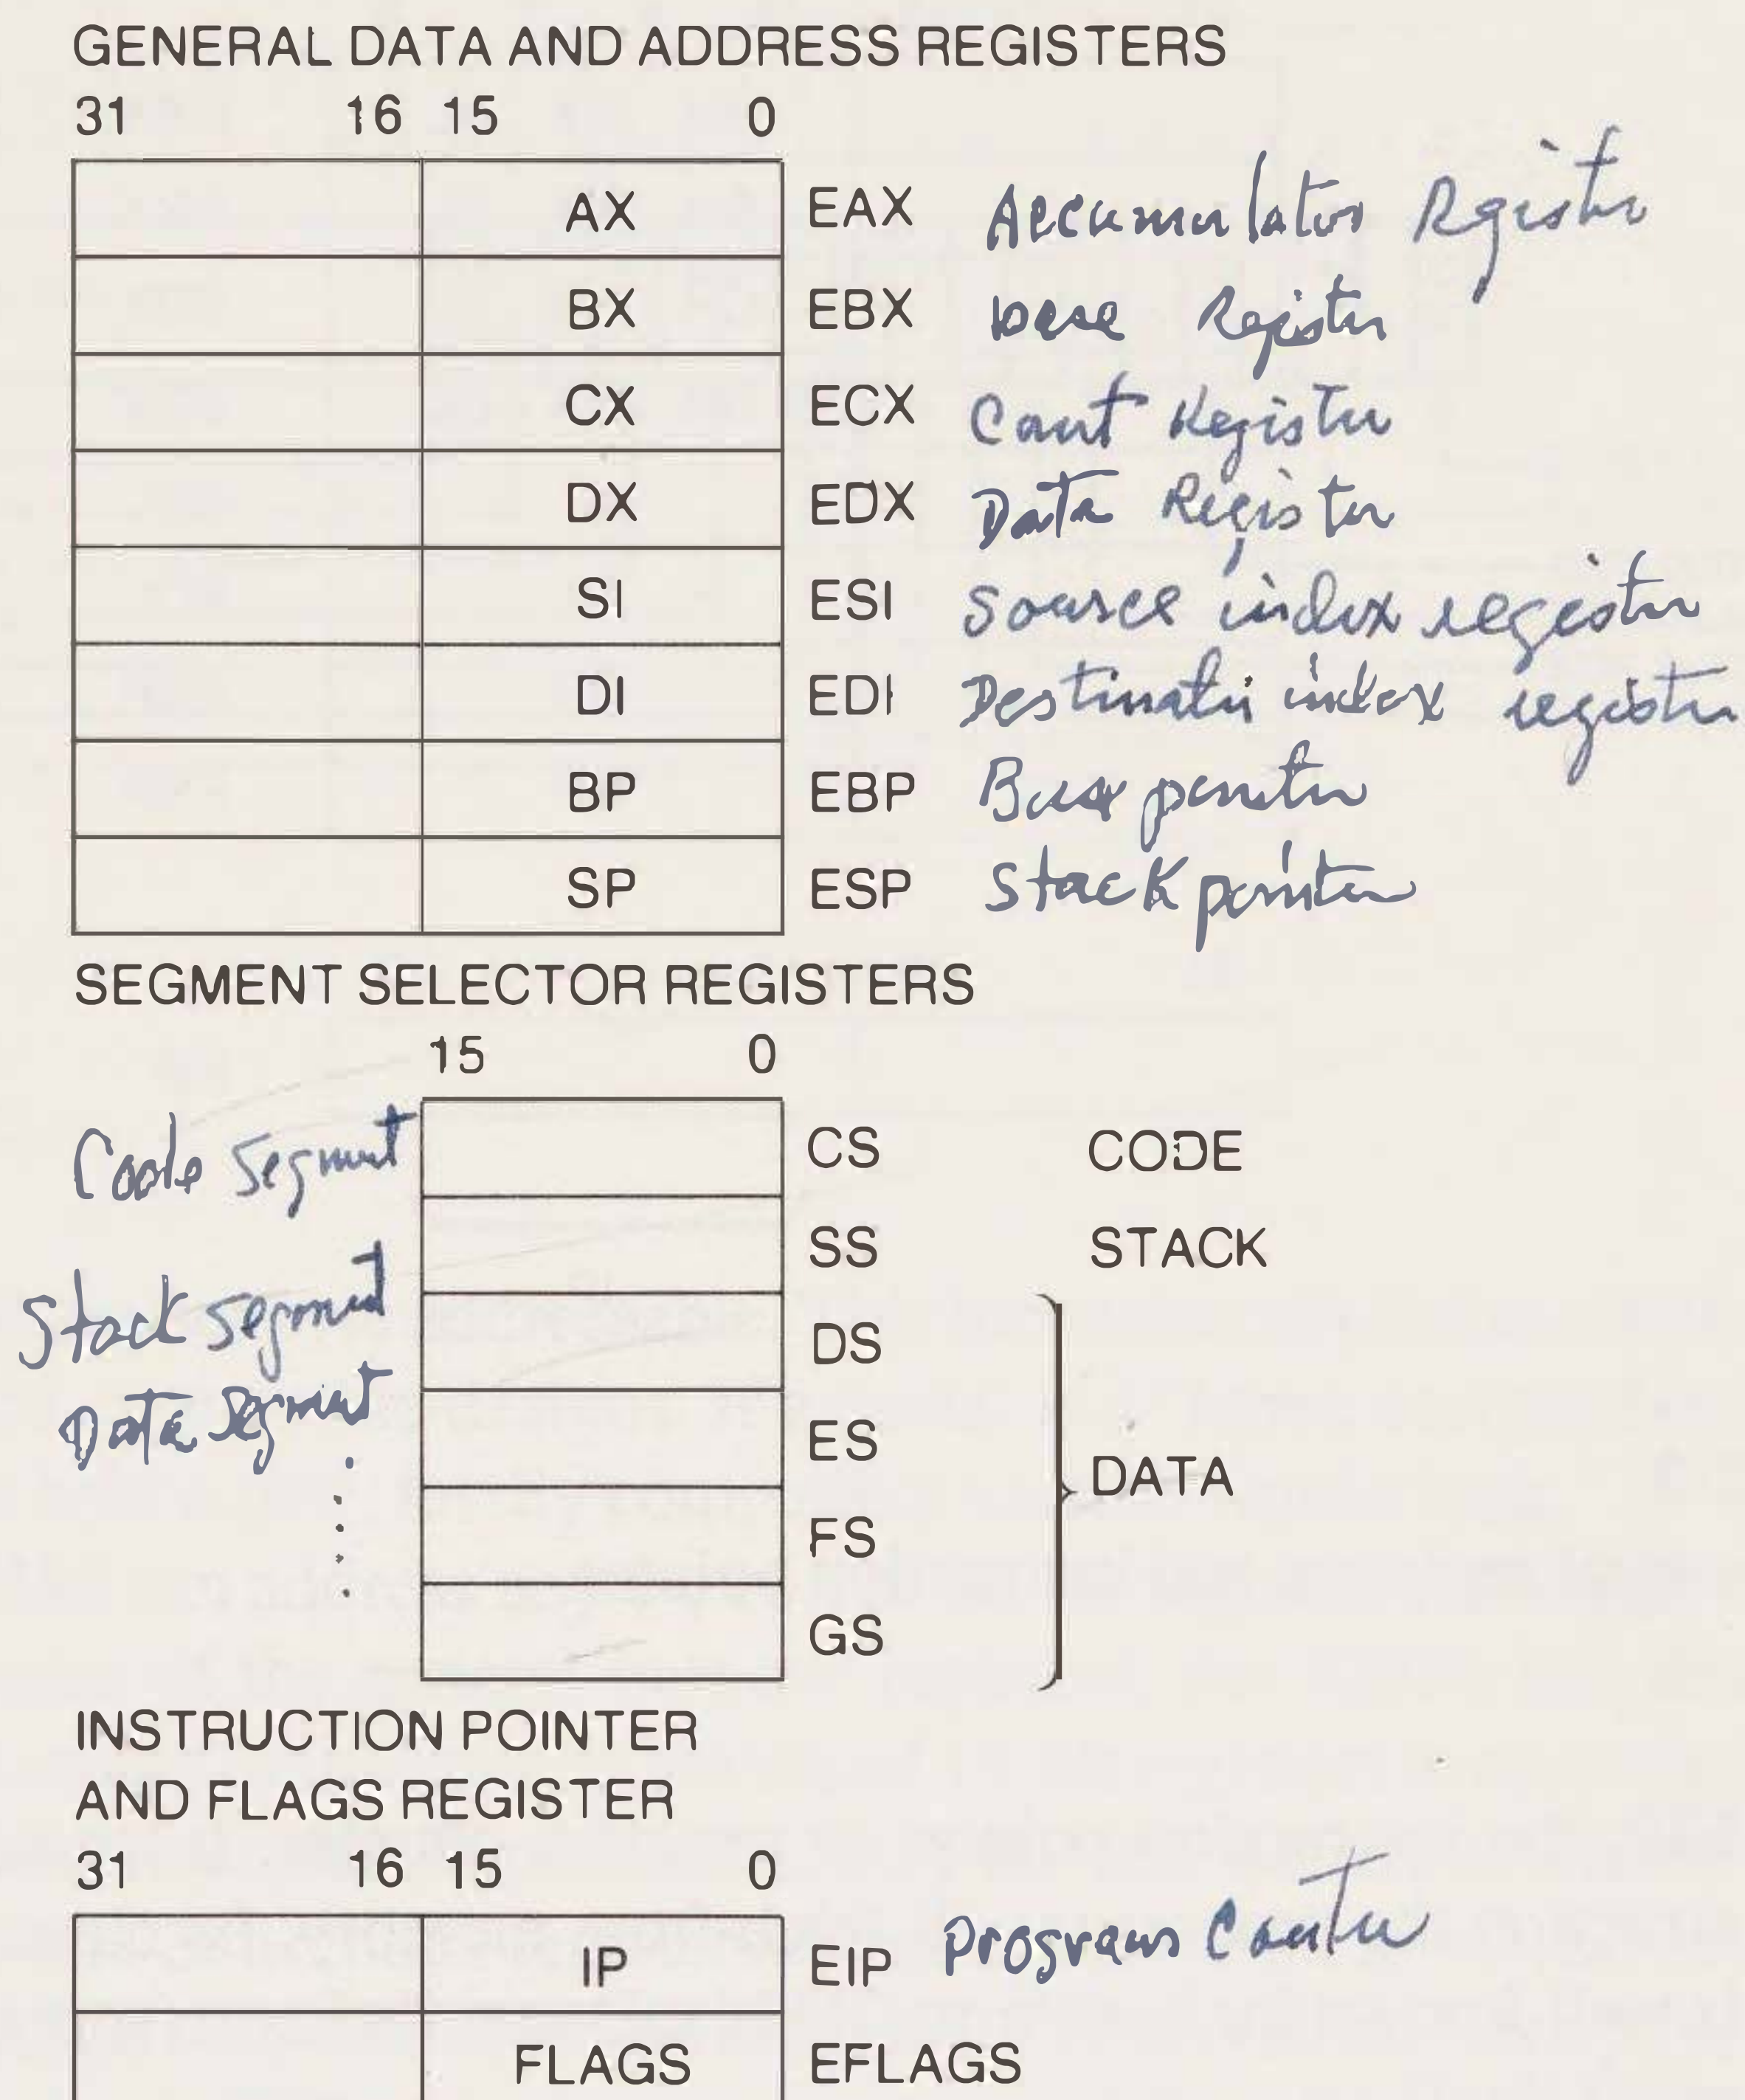 GENERAL DATA AND ADDRESS REGISTERS
31 16 15 0
AX EAX Accumulator Rgister
BX EBX base Register
CX ECX Count Register
DX EDX Data Register
SI ESI Source index register
DI EDI Destination index register
BP EBP Base pointer
SP ESP Stack pointer
SEGMENT SELECTOR REGISTERS
15 0
Code Segment CS CODE
SS STACK
Stack Segment DS
Data Segment ES
DATA
FS
GS
INSTRUCTION POINTER
AND FLAGS REGISTER
31 16 15 0
IP EIP Program Counter
FLAGS EFLAGS